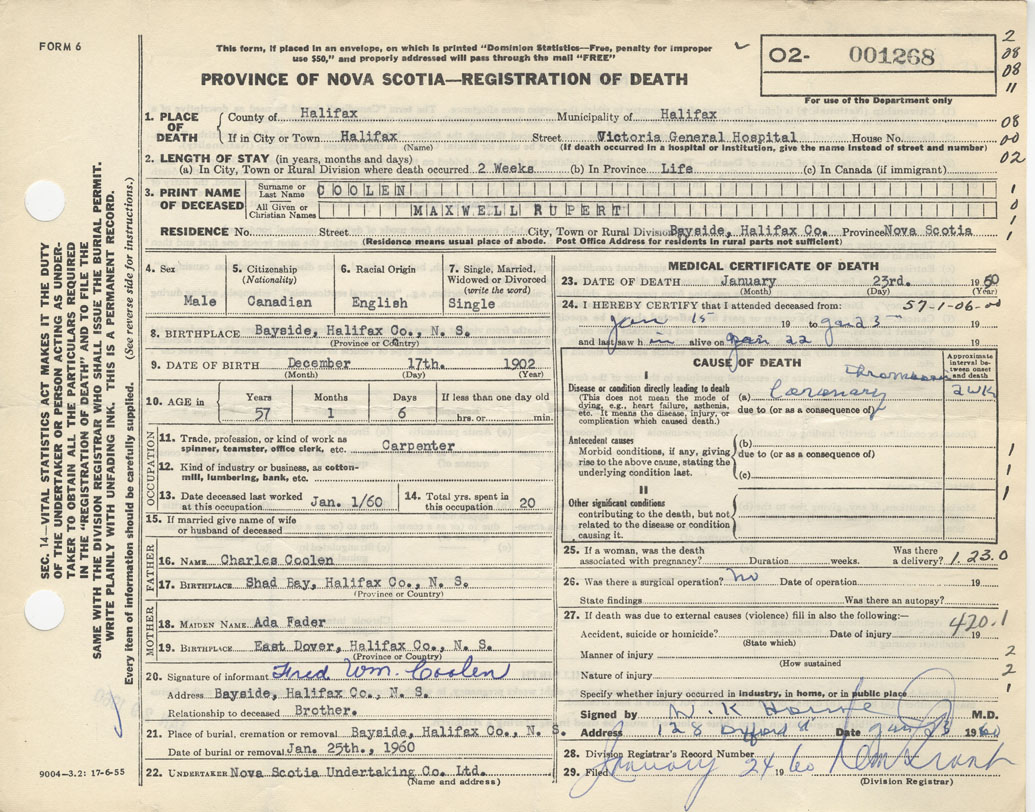 FORM 6
This form, if placed in an envelope, on which is printed "Dominion Statistics—Free, penalty for improper
use $50," and properly addressed will pass through the mail "FREE"
PROVINCE OF NOVA SCOTIA—REGISTRATION OF DEATH
O2- 001268
For use of the Department only
2
08
08
11
08
00
02
1
0
1
1
SEC. 14—VITAL STATISTICS ACT MAKES IT THE DUTY
OF THE UNDERTAKER OR PERSON ACTING AS UNDER-
TAKER TO OBTAIN ALL THE PARTICULARS REQUIRED
IN THE "REGISTRATION OF DEATH" AND TO FILE THE
SAME WITH THE DIVISION REGISTRAR WHO SHALL ISSUE THE BURIAL PERMIT.
WRITE PLAINLY WITH UNFADING INK. THIS IS A PERMANENT RECORD.
Every item of information should be carefully supplied. (See reverse side for instructions.)
1. PLACE OF DEATH
County of Halifax Municipality of Halifax
If in City or Town Halifax Street Victoria General Hospital House No.
(Name) (If death occurred in a hospital or institution, give the name instead of street and number)
2. LENGTH OF STAY (in years, months and days)
(a) In City, Town or Rural Division where death occurred 2 Weeks (b) In Province Life (c) In Canada (if immigrant)
3. PRINT NAME OF DECEASED
Surname or Last Name COOLEN
All Given or Christian Names MAXWELL RUPERT
RESIDENCE No. Street City, Town or Rural Division Bayside, Halifax Co. Province Nova Scotia
(Residence means usual place of abode. Post Office Address for residents in rural parts not sufficient)
4. Sex
Male
5. Citizenship (Nationality)
Canadian
6. Racial Origin
English
7. Single, Married, Widowed or Divorced (write the word)
Single
8. BIRTHPLACE Bayside, Halifax Co., N. S.
(Province or Country)
9. DATE OF BIRTH December 17th. 1902
(Month) (Day) (Year)
10. AGE in Years Months Days If less than one day old
57 1 6 hrs. or min.
OCCUPATION
11. Trade, profession, or kind of work as spinner, teamster, office clerk, etc. Carpenter
12. Kind of industry or business, as cotton-mill, lumbering, bank, etc.
13. Date deceased last worked at this occupation Jan. 1/60
14. Total yrs. spent in this occupation 20
15. If married give name of wife or husband of deceased
FATHER
16. NAME Charles Coolen
17. BIRTHPLACE Shad Bay, Halifax Co., N. S.
(Province or Country)
MOTHER
18. MAIDEN NAME Ada Fader
19. BIRTHPLACE East Dover, Halifax Co., N. S.
(Province or Country)
20. Signature of informant Fred Wm. Coolen
Address Bayside, Halifax Co., N. S.
Relationship to deceased Brother.
21. Place of burial, cremation or removal Bayside, Halifax Co., N. S.
Date of burial or removal Jan. 25th., 1960
22. UNDERTAKER Nova Scotia Undertaking Co. Ltd.
(Name and address)
9004—3.2: 17-6-55
MEDICAL CERTIFICATE OF DEATH
23. DATE OF DEATH January 23rd. 1960
(Month) (Day) (Year)
24. I HEREBY CERTIFY that I attended deceased from: 57-1-06-00
Jan 15 19 to Jan 23 19
and last saw him alive on Jan 22 19
CAUSE OF DEATH
Approximate interval between onset and death
I
Disease or condition directly leading to death
(This does not mean the mode of dying, e.g., heart failure, asthenia, etc. It means the disease, injury, or complication which caused death.)
(a) Coronary Thrombosis 2 wk
due to (or as a consequence of)
Antecedent causes
Morbid conditions, if any, giving rise to the above cause, stating the underlying condition last.
(b)
due to (or as a consequence of)
(c)
II
Other significant conditions
contributing to the death, but not related to the disease or condition causing it.
1
1
1
25. If a woman, was the death associated with pregnancy? Duration weeks. Was there a delivery? 1.23.0
26. Was there a surgical operation? no Date of operation 19
State findings Was there an autopsy?
27. If death was due to external causes (violence) fill in also the following:—
420.1
Accident, suicide or homicide? Date of injury 19
(State which)
Manner of injury 2
(How sustained)
Nature of injury 2
Specify whether injury occurred in industry, in home, or in public place 1
Signed by M.D.
Address 128 Date Jan 23 1960
28. Division Registrar's Record Number
29. Filed January 24 1960
(Division Registrar)